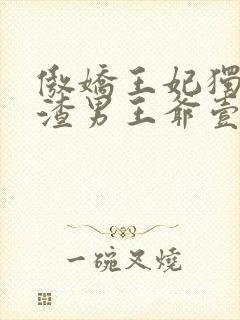 傲嬌王妃獨
渣男王爺壹
一碗叉燒